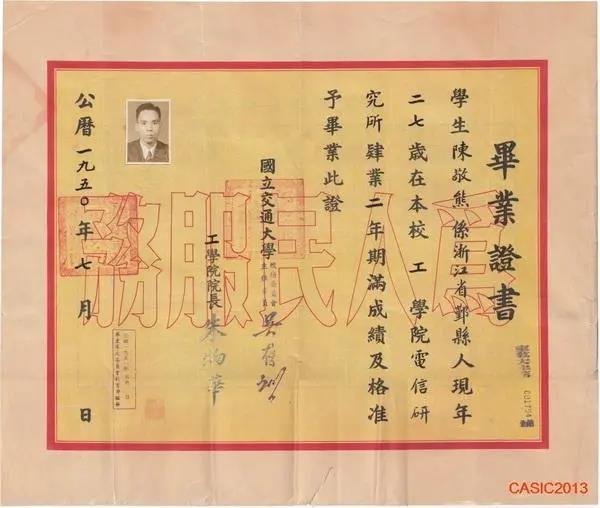 畢業證書
學生陳敬熊係浙江省鄞縣人現年
二七歲在本校工學院電信研
究所肄業二年期滿成績及格准
予畢業此證
國立交通大學
校務委員會
主任委員
吳有訓
工學院院長
朱物華
公曆一九五〇年七月 日
為人民服務
CASIC2013